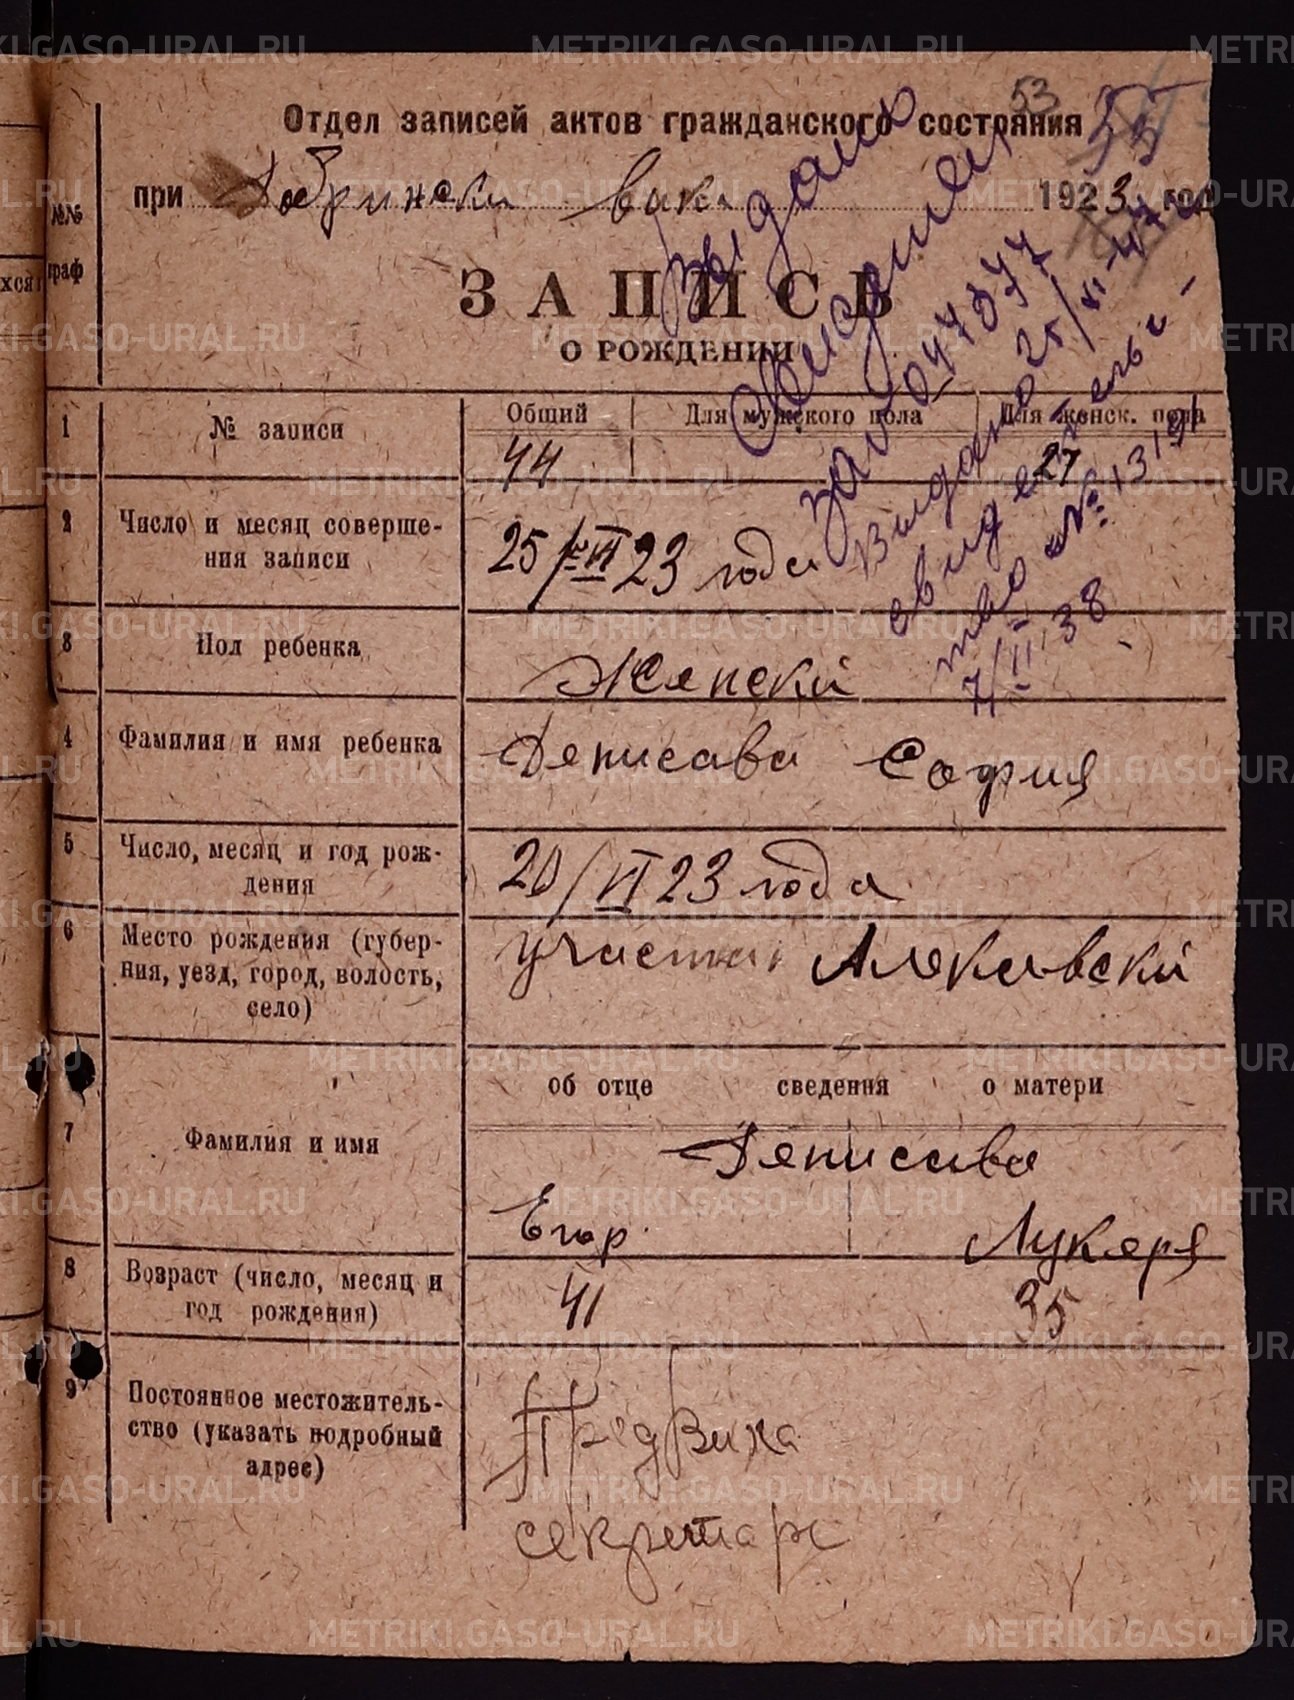 53
Отдел записей актов гражданского состояния
№№
граф
при Добрински вика 1923 год
ЗАПИСЬ
О РОЖДЕНИИ
Выдано
047377
25/VI-47 г.
Выдано
свидетель-
тво № 1319
7/II 38
1 № записи Общий Для мужского пола Для женск. пола
44 27
2 Число и месяц соверше-
ния записи
25/VI 23 года
3 Пол ребенка Женский
4 Фамилия и имя ребенка Денисава София
5 Число, месяц и год рож-
дения
20/VI 23 года
6 Место рождения (губер-
ния, уезд, город, волость,
село)
участки
об отце сведения о матери
7 Фамилия и имя
Денисава
Егор Лукеря
8 Возраст (число, месяц и
год рождения)
41 35
9 Постоянное местожитель-
ство (указать подробный
адрес)
Предвика
секретарь
METRIKI.GASO-URAL.RU